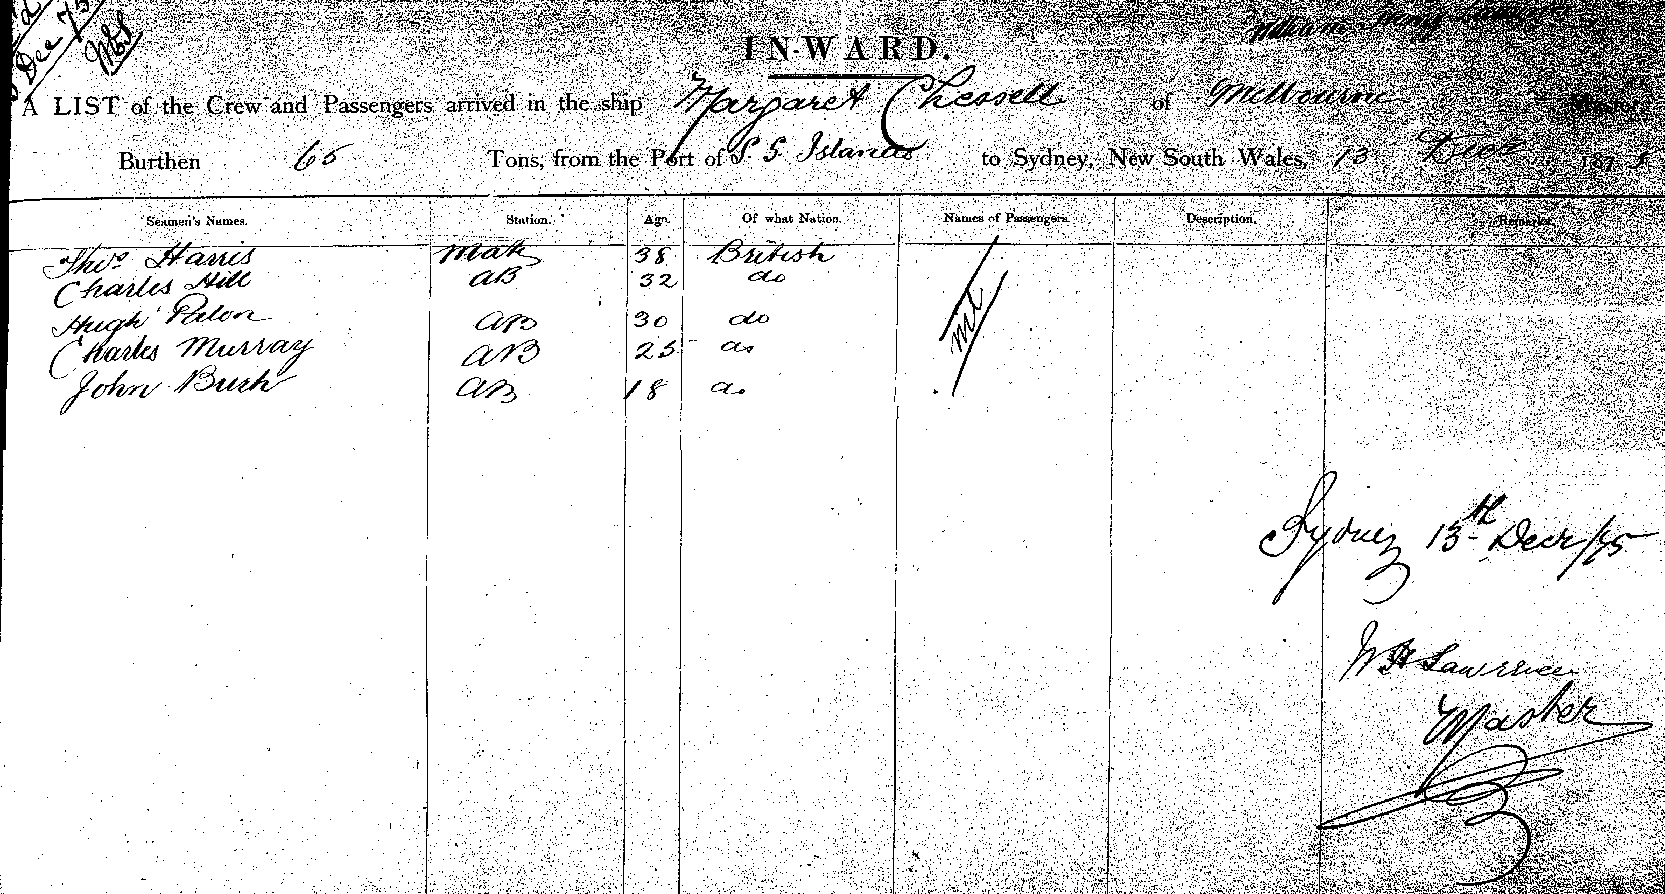 Dec 75
INWARD.
A LIST of the Crew and Passengers arrived in the ship Margaret Chessell of Melbourne
Burthen 65 Tons, from the Port of S. S. Islands to Sydney, New South Wales, 13 Decr 1875
Seamen's Names. Station. Age. Of what Nation. Names of Passengers. Description. Remarks.
Thos Harris Mate 38 British
Charles Hill AB 32 do
Hugh AB 30 do
Charles Murray AB 25 do
John AB 18 do
Sydney 13th Decr /75
W H Lawrence
Master